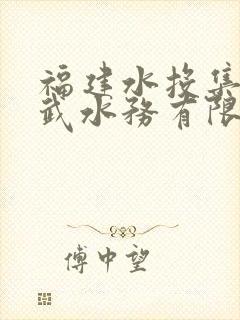 福建水投集
武水务有限
傅中望